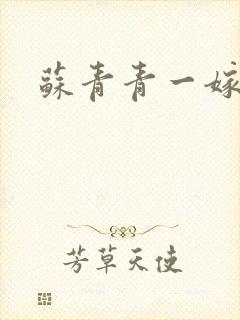 蘇青青一嫁
芳草天使